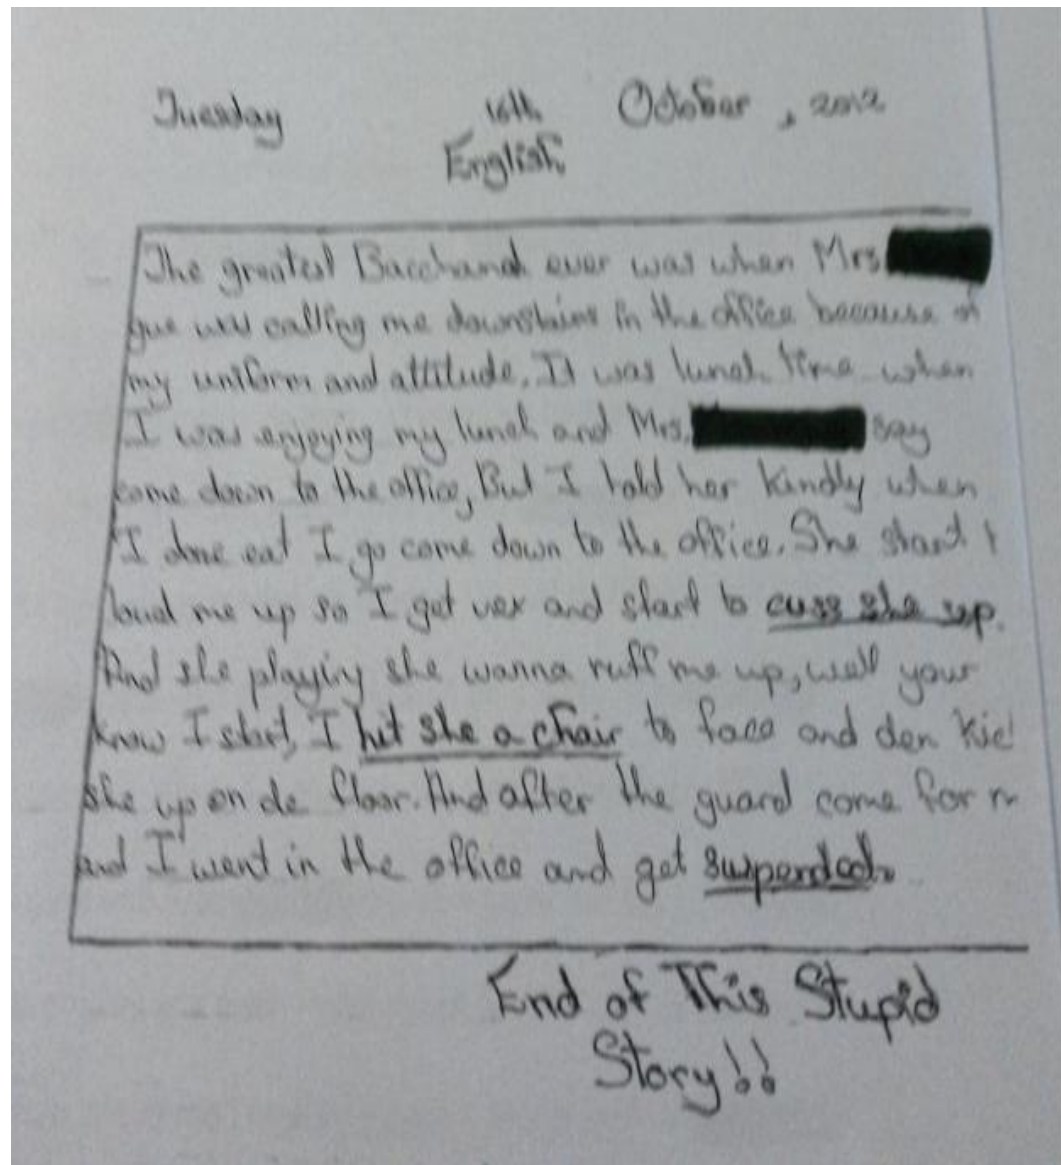 Tuesday 16th October, 2012
English
The greatest Bacchanal ever was when Mrs
was calling me downstairs in the office because of
my uniform and attitude. It was lunch time when
I was enjoying my lunch and Mrs. say
come down to the office, But I told her kindly when
I done eat I go come down to the office. She start t
loud me up so I get vex and start to cuss she up.
And she playing she wanna ruff me up, well your
know I start, I hit she a chair to face and den kic
she up on de floor. And after the guard come for m
and I went in the office and get suspended.
End of This Stupid
Story!!